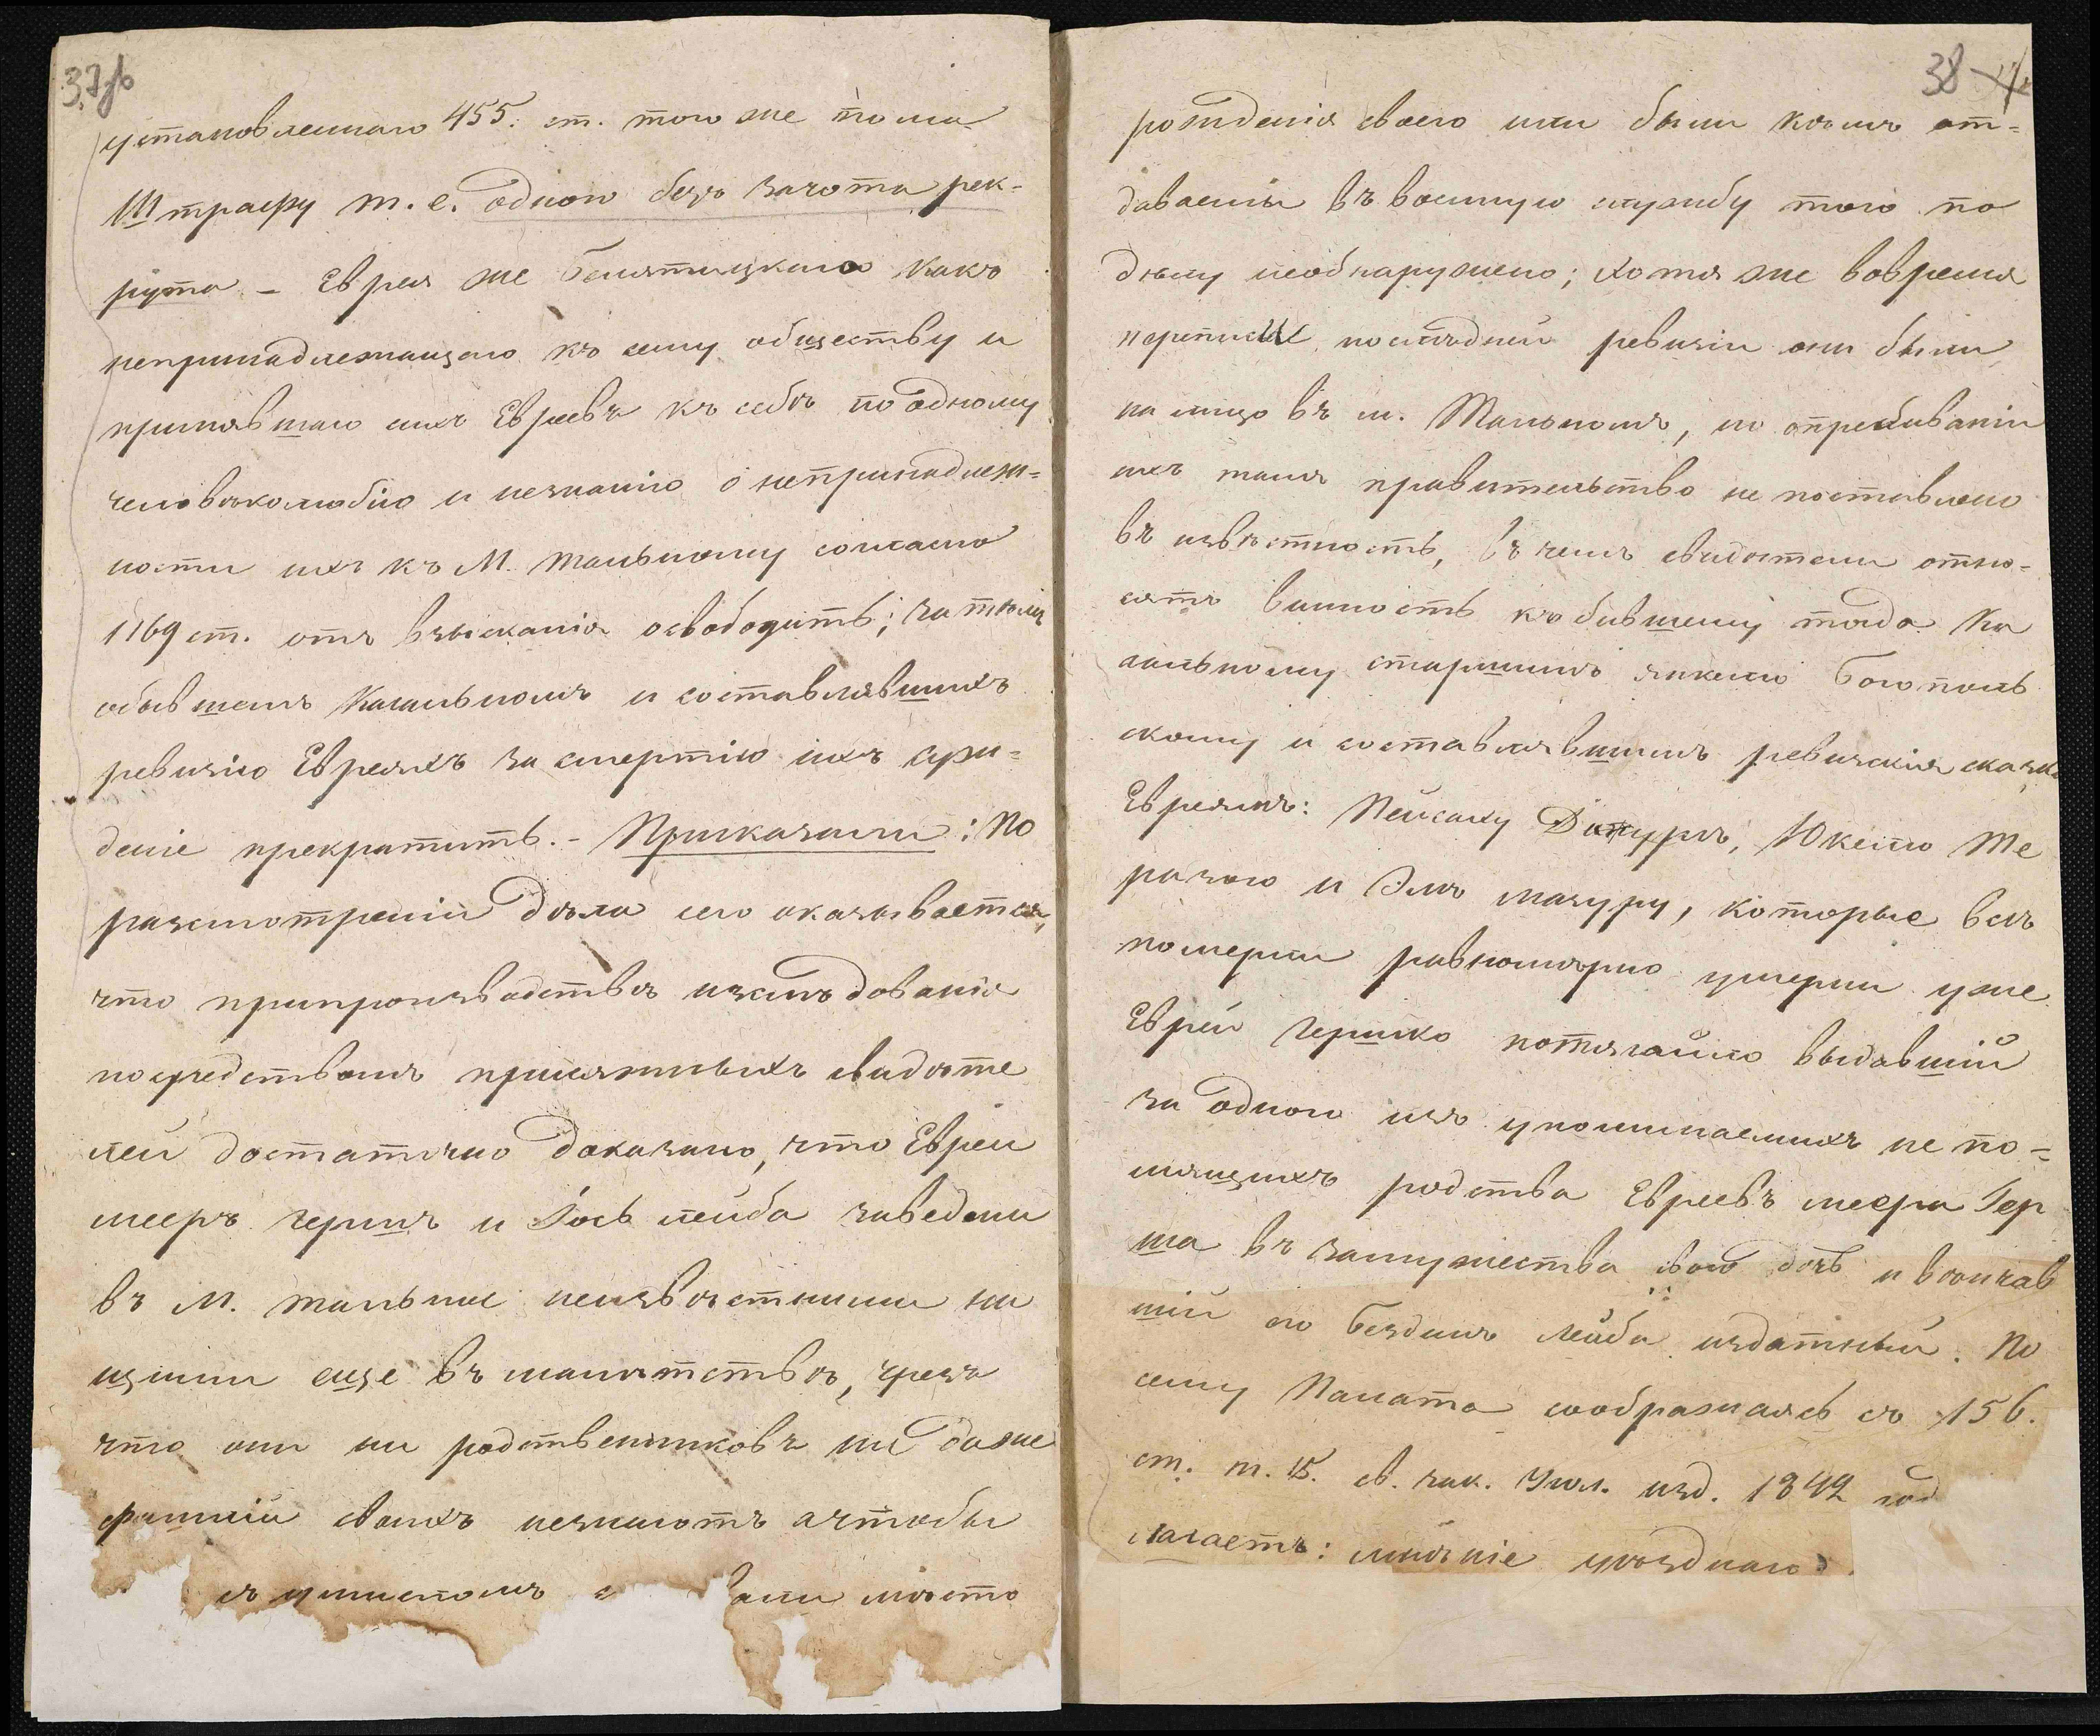 37об
установленнаго 455. ст. того же тома
Штрафу т. е. одного безъ зачота рек-
рута – Еврея же Белятицкаго какъ
непринадлежащаго къ сему обществу и
принявшаго сихъ Евреевъ къ себѣ по одному
человѣколюбію и незнанію о непринадлеж-
ности ихъ къ М. Тальному согласно
1169 ст. отъ взысканія освободить; затѣмъ
обывшемъ Кагальномъ и составлявшихъ
ревизію Евреяхъ за смертію ихъ суж-
деніе прекратить. – Приказали: По
разсмотреніи дѣла сего оказывается,
что припроизводствѣ изслѣдованія
посредствомъ присяжныхъ свидѣте
лей достаточно доказано, что Евреи
мееръ гершъ и Іось лейба заведены
въ М. тальное неизвѣстными ни
щими еще въ малолѣтствѣ, чрезъ
что они ни родственниковъ ни даже
фамилій своихъ незнаютъ ачтобы
съ умысломъ мѣсто
38
рожденія своего или были кѣмъ от=
даваемы въ военную службу того по
дѣлу необнаружено; хотя же вовремя
переписи послѣдней ревизіи они были
на лицо въ м. Тальномъ, но опребываніи
ихъ тамъ правительство не поставлено
въ извѣстность, въ чемъ свидѣтели отно=
сятъ винность къ бывшему тогда Ка
гальному старшинѣ Богополь
скому и составлявшимъ ревизскія сказки
Евреямъ: Пейсаху Юкелю Те
разою и Элѣ мазуру, которые всѣ
померли равномѣрно умерли уже
Еврей Гершко выдавшій
за одного изъ упоминаемыхъ не по=
мнящихъ родства Евреевъ меера Гер
ша въ замужества свою дочь и вѣнчав
шій его Лейба издатный. По
сему Палата сообразжаясь съ 156.
ст. т. 15. св. зак. Угол. изд. 1842 год
лагаетъ: мнѣніе уѣзднаго